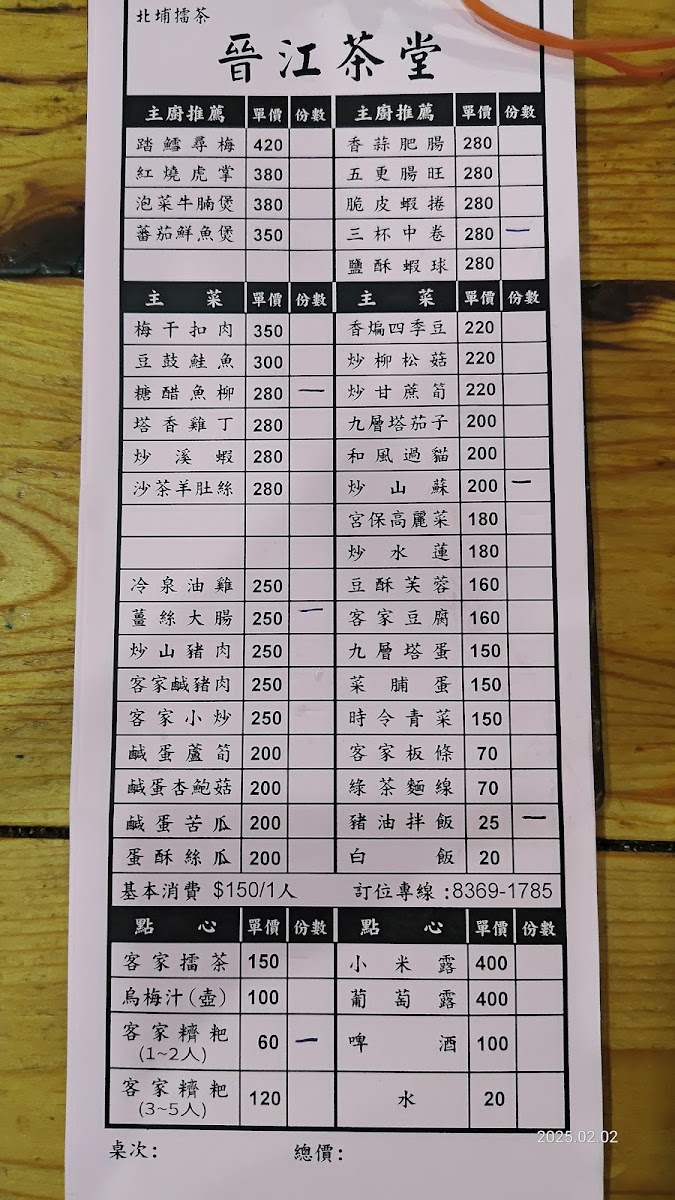 北埔擂茶
晉江茶堂
主廚推薦 單價 份數 主廚推薦 單價 份數
踏鱈尋梅 420 香蒜肥腸 280
紅燒虎掌 380 五更腸旺 280
泡菜牛腩煲 380 脆皮蝦捲 280
蕃茄鮮魚煲 350 三杯中卷 280 一
鹽酥蝦球 280
主菜 單價 份數 主菜 單價 份數
梅干扣肉 350 香煸四季豆 220
豆鼓鮭魚 300 炒柳松菇 220
糖醋魚柳 280 一 炒甘蔗筍 220
塔香雞丁 280 九層塔茄子 200
炒溪蝦 280 和風過貓 200
沙茶羊肚絲 280 炒山蘇 200 一
宮保高麗菜 180
炒水蓮 180
冷泉油雞 250 豆酥芙蓉 160
薑絲大腸 250 一 客家豆腐 160
炒山豬肉 250 九層塔蛋 150
客家鹹豬肉 250 菜脯蛋 150
客家小炒 250 時令青菜 150
鹹蛋蘆筍 200 客家板條 70
鹹蛋杏鮑菇 200 綠茶麵線 70
鹹蛋苦瓜 200 豬油拌飯 25 一
蛋酥絲瓜 200 白飯 20
基本消費 $150/1人 訂位專線:8369-1785
點心 單價 份數 點心 單價 份數
客家擂茶 150 小米露 400
烏梅汁(壺) 100 葡萄露 400
客家糬粑 60 一 啤酒 100
(1~2人)
客家糬粑 120 水 20
(3~5人)
2025.02.02
桌次: 總價: